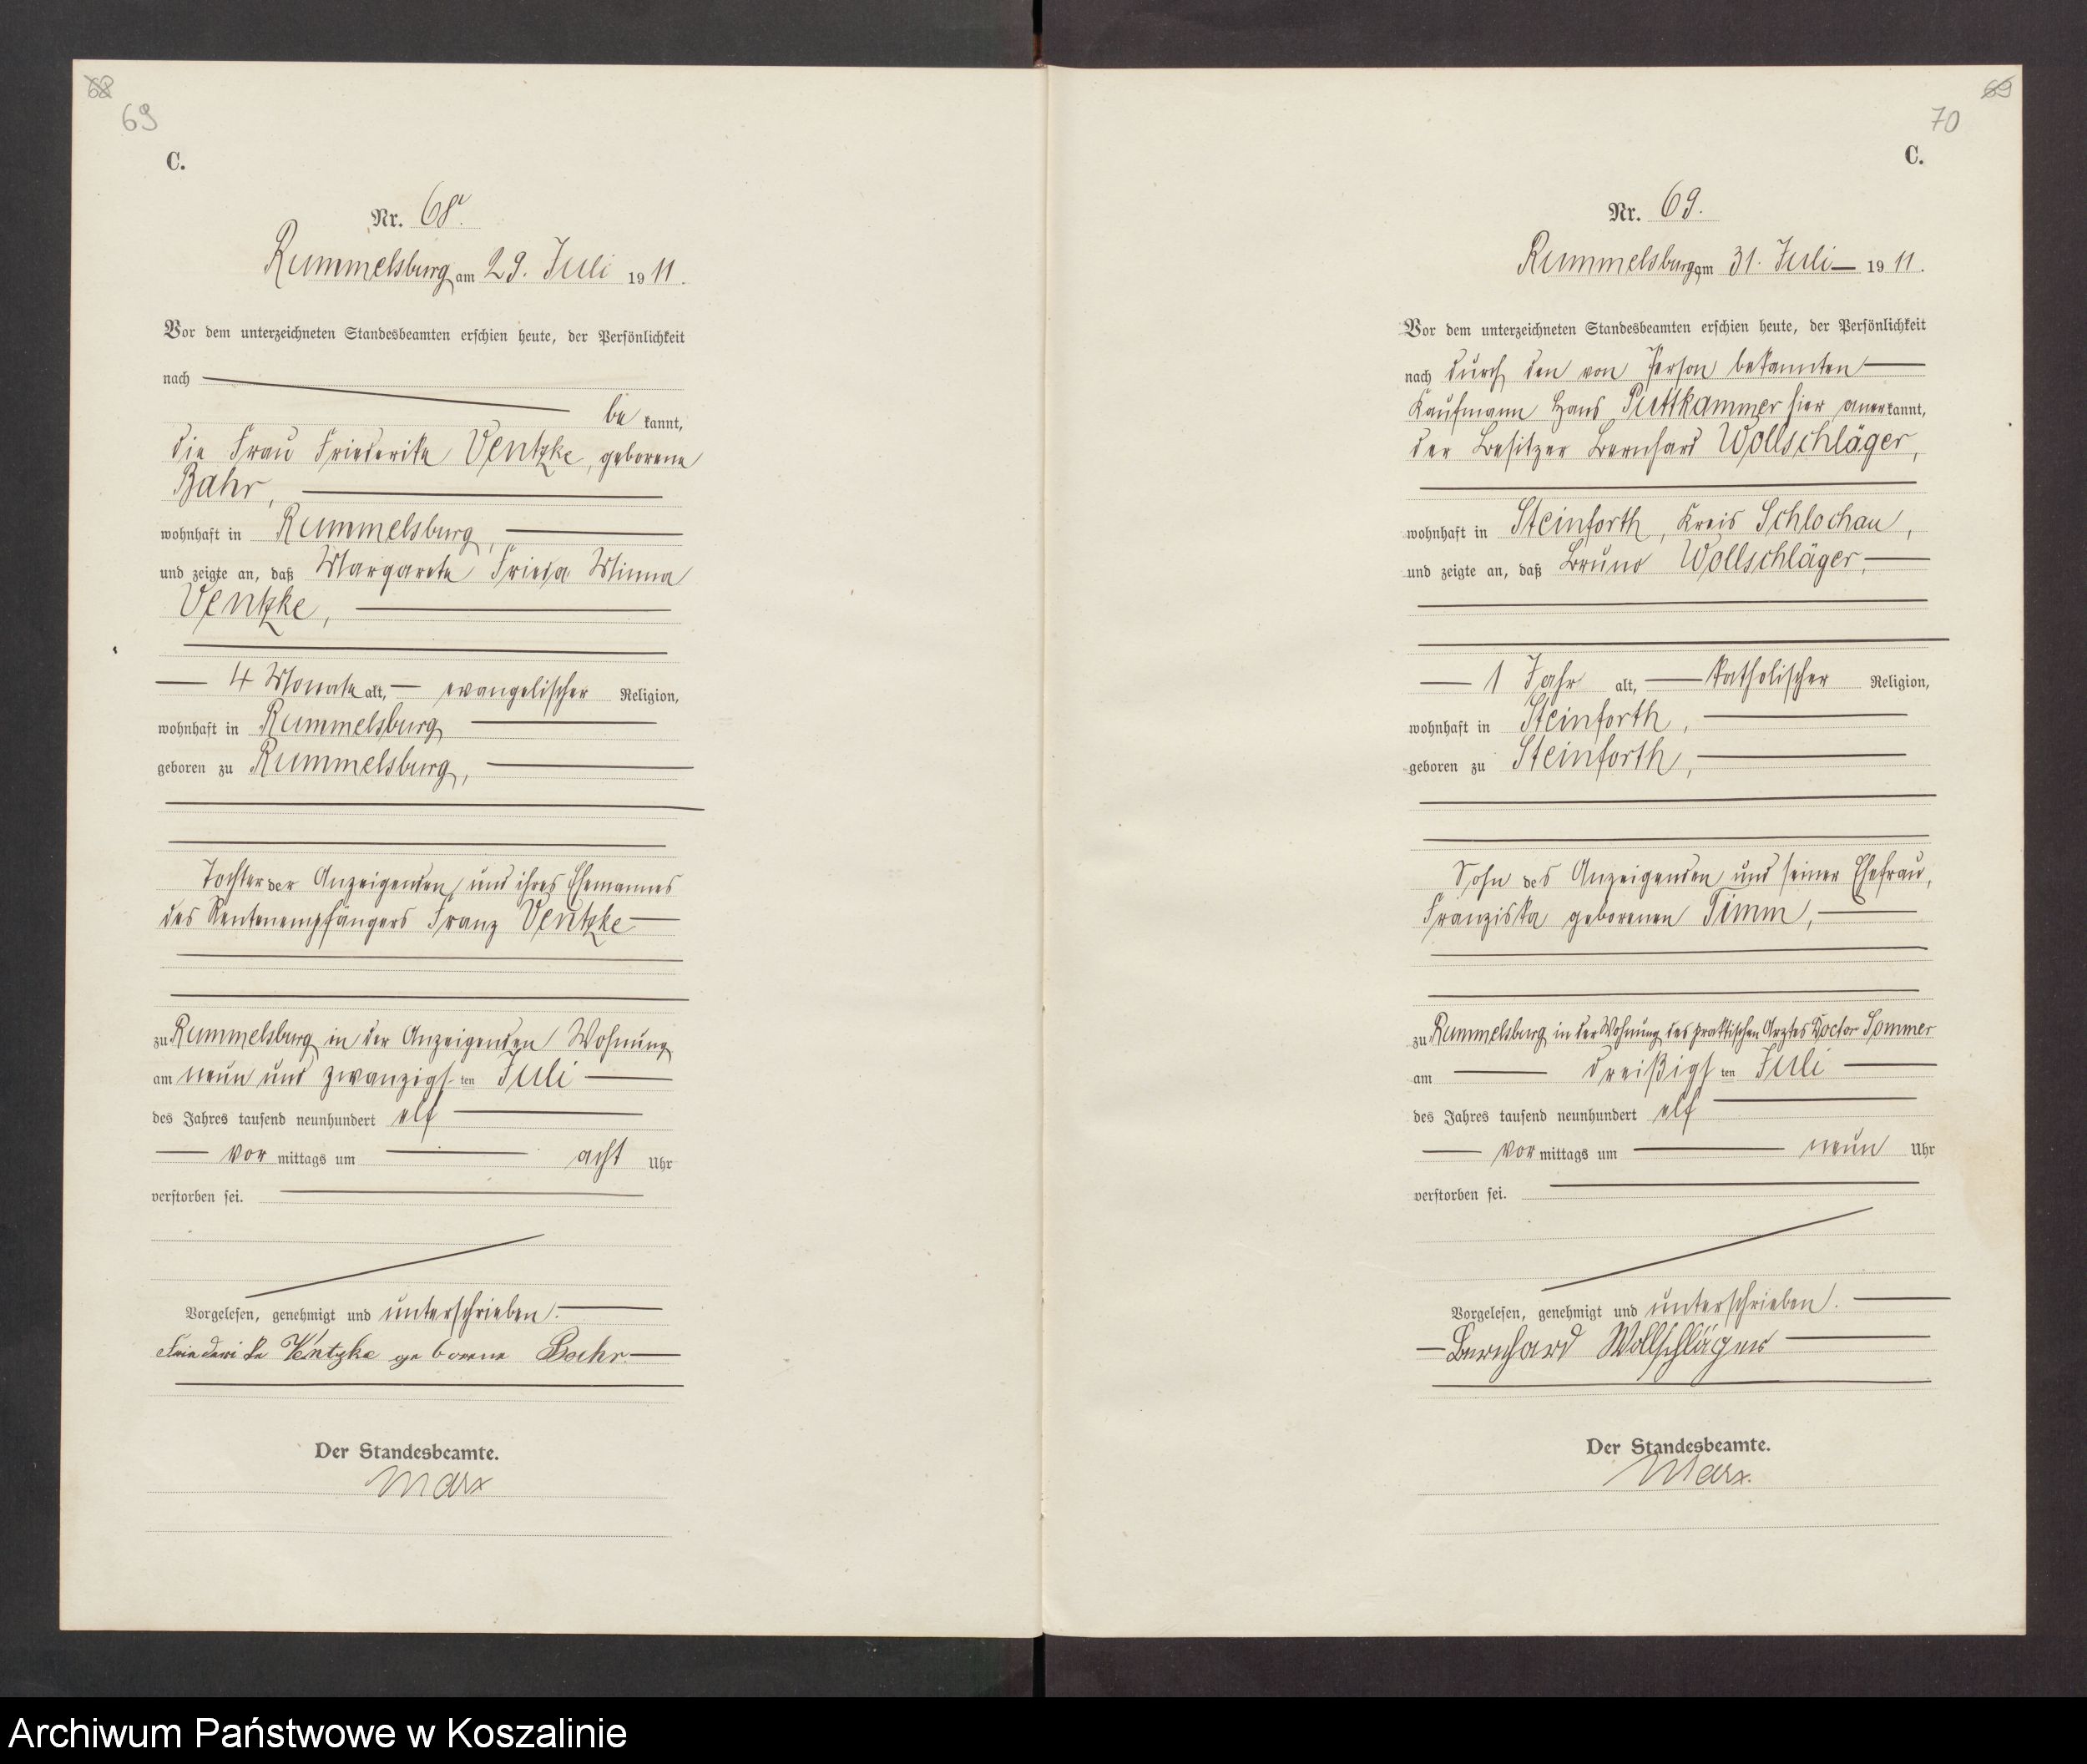 68
69
C.
Nr. 68.
Rummelsburg am 29. Juli 1911.
Vor dem unterzeichneten Standesbeamten erschien heute, der Persönlichkeit
nach
be kannt,
die Frau Friederike Ventzke, geborene
Bahr,
wohnhaft in Rummelsburg,
und zeigte an, daß Margarete Frieda Minna
Ventzke,
4 Monate alt, evangelischer Religion,
wohnhaft in Rummelsburg
geboren zu Rummelsburg,
Tochter der Anzeigenden und ihres Ehemannes
des Rentenempfängers Franz Ventzke
zu Rummelsburg in der Anzeigenden Wohnung
am neun und zwanzigsten Juli
des Jahres tausend neunhundert elf
vor mittags um acht Uhr
verstorben sei.
Vorgelesen, genehmigt und unterschrieben.
Friederike Ventzke geborene Bahr.
Der Standesbeamte.
Marx
69
70
C.
Nr. 69.
Rummelsburg am 31. Juli 1911.
Vor dem unterzeichneten Standesbeamten erschien heute, der Persönlichkeit
nach durch den von Person bekannten
Kaufmann Hans Puttkammer hier anerkannt,
der Besitzer Bernhard Wollschläger,
wohnhaft in Steinforth, Kreis Schlochau,
und zeigte an, daß Bruno Wollschläger,
1 Jahr alt, katholischer Religion,
wohnhaft in Steinforth,
geboren zu Steinforth,
Sohn des Anzeigenden und seiner Ehefrau,
Franziska geborenen Timm,
zu Rummelsburg in der Wohnung des praktischen Arztes Doctor Sommer
am dreißigsten Juli
des Jahres tausend neunhundert elf
vor mittags um neun Uhr
verstorben sei.
Vorgelesen, genehmigt und unterschrieben.
Bernhard Wollschläger
Der Standesbeamte.
Marx.
Archiwum Państwowe w Koszalinie